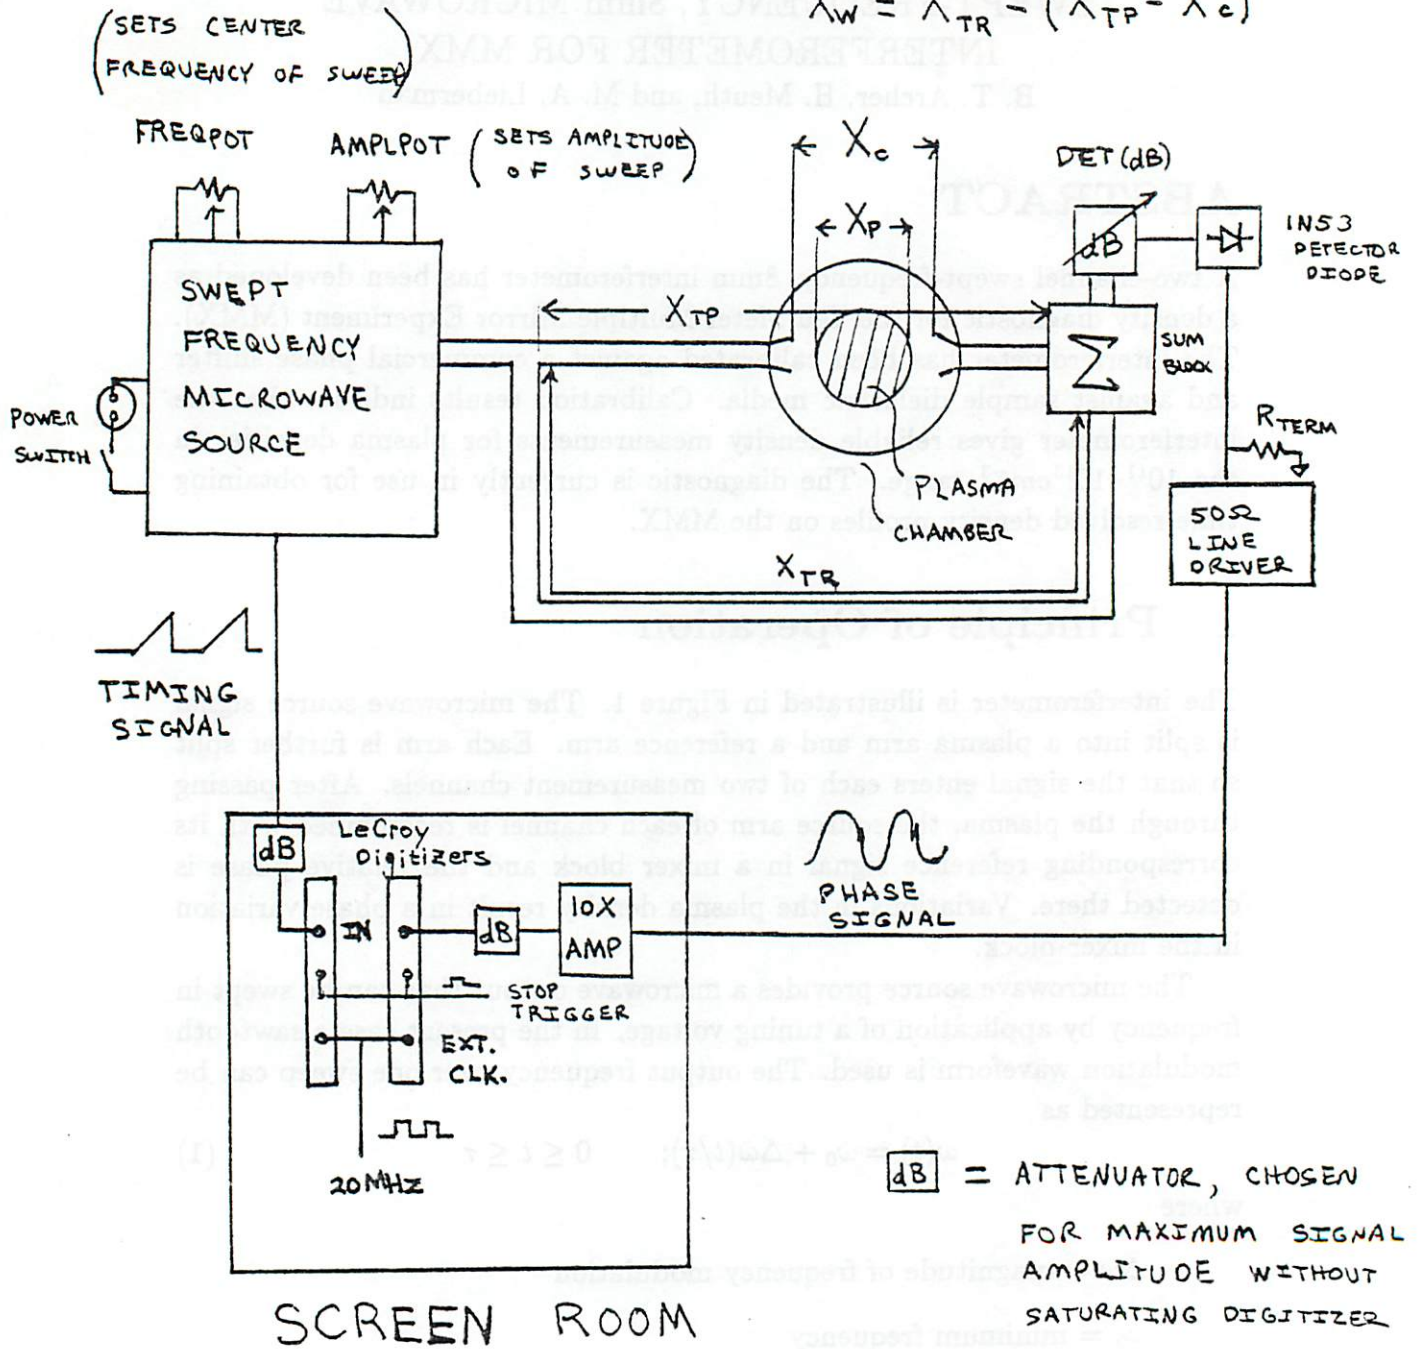 X_W = X_TR - (X_TP - X_c)
(SETS CENTER
FREQUENCY OF SWEEP)
FREQPOT
AMPLPOT
(SETS AMPLITUDE
OF SWEEP)
X_c
X_P
DET (dB)
dB
IN53
DETECTOR
DIODE
SWEPT
FREQUENCY
MICROWAVE
SOURCE
X_TP
Σ
SUM
BLOCK
POWER
SWITCH
R_TERM
PLASMA
CHAMBER
50Ω
LINE
DRIVER
X_TR
TIMING
SIGNAL
LeCroy
Digitizers
dB
IN
dB
10X
AMP
PHASE
SIGNAL
STOP
TRIGGER
EXT.
CLK.
20MHz
dB = ATTENUATOR, CHOSEN
FOR MAXIMUM SIGNAL
AMPLITUDE WITHOUT
SATURATING DIGITIZER
SCREEN ROOM